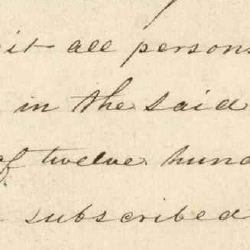 it all persons
in the said
of twelve hund
subscribed